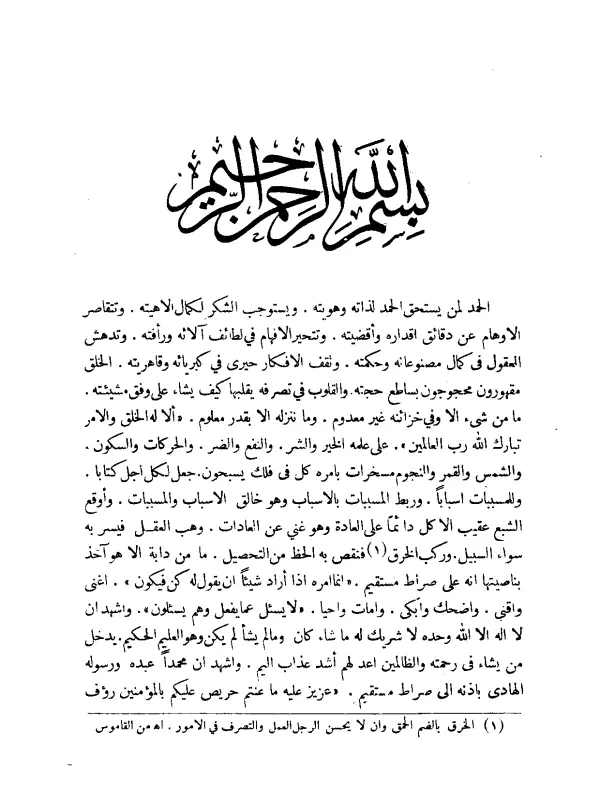 بسم الله الرحمن الرحيم
الحمد لمن يستحق الحمد لذاته وهويته . ويستوجب الشكر لكمال الاهيته . وتتقاصر
الاوهام عن دقائق اقداره وأقضيته . وتتحير الافهام في لطائف آلائه ورأفته . وتدهش
العقول في كمال مصنوعاته وحكمته . وتقف الافكار حيرى في كبريائه وقاهريته . الخلق
مقهورون محجوجون بساطع حجته. والقلوب في تصرفه يقلبها كيف يشاء على وفق مشيئته .
ما من شيء الا وفي خزائنه غير معدوم . وما ننزله الا بقدر معلوم . «ألا له الخلق والامر
تبارك الله رب العالمين» . على علمه الخير والشر . والنفع والضر . والحركات والسكون .
والشمس والقمر والنجوم مسخرات بامره كل في فلك يسبحون. جعل لكل اجل كتابا .
وللمسببات اسباباً . وربط المسببات بالاسباب وهو خالق الاسباب والمسببات . وأوقع
الشبع عقيب الاكل دائماً على العادة وهو غني عن العادات . وهب العقل فيسر به
سواء السبيل. وركب الخرق (١) فنقص به الحظ من التحصيل . ما من دابة الا هو آخذ
بناصيتها انه على صراط مستقيم . «انما امره اذا أراد شيئاً ان يقول له كن فيكون» . اغنى
واقنى . واضحك وابكى . وامات واحيا . «لا يسئل عما يفعل وهم يسئلون» . واشهد ان
لا اله الا الله وحده لا شريك له ما شاء كان ومالم يشأ لم يكن وهو العليم الحكيم. يدخل
من يشاء في رحمته والظالمين اعد لهم أشد عذاب اليم . واشهد ان محمداً عبده ورسوله
الهادى باذنه الى صراط مستقيم . «عزيز عليه ما عنتم حريص عليكم بالمؤمنين رؤف
(١) الخرق بالضم الحمق وان لا يحسن الرجل العمل والتصرف في الامور . اه من القاموس